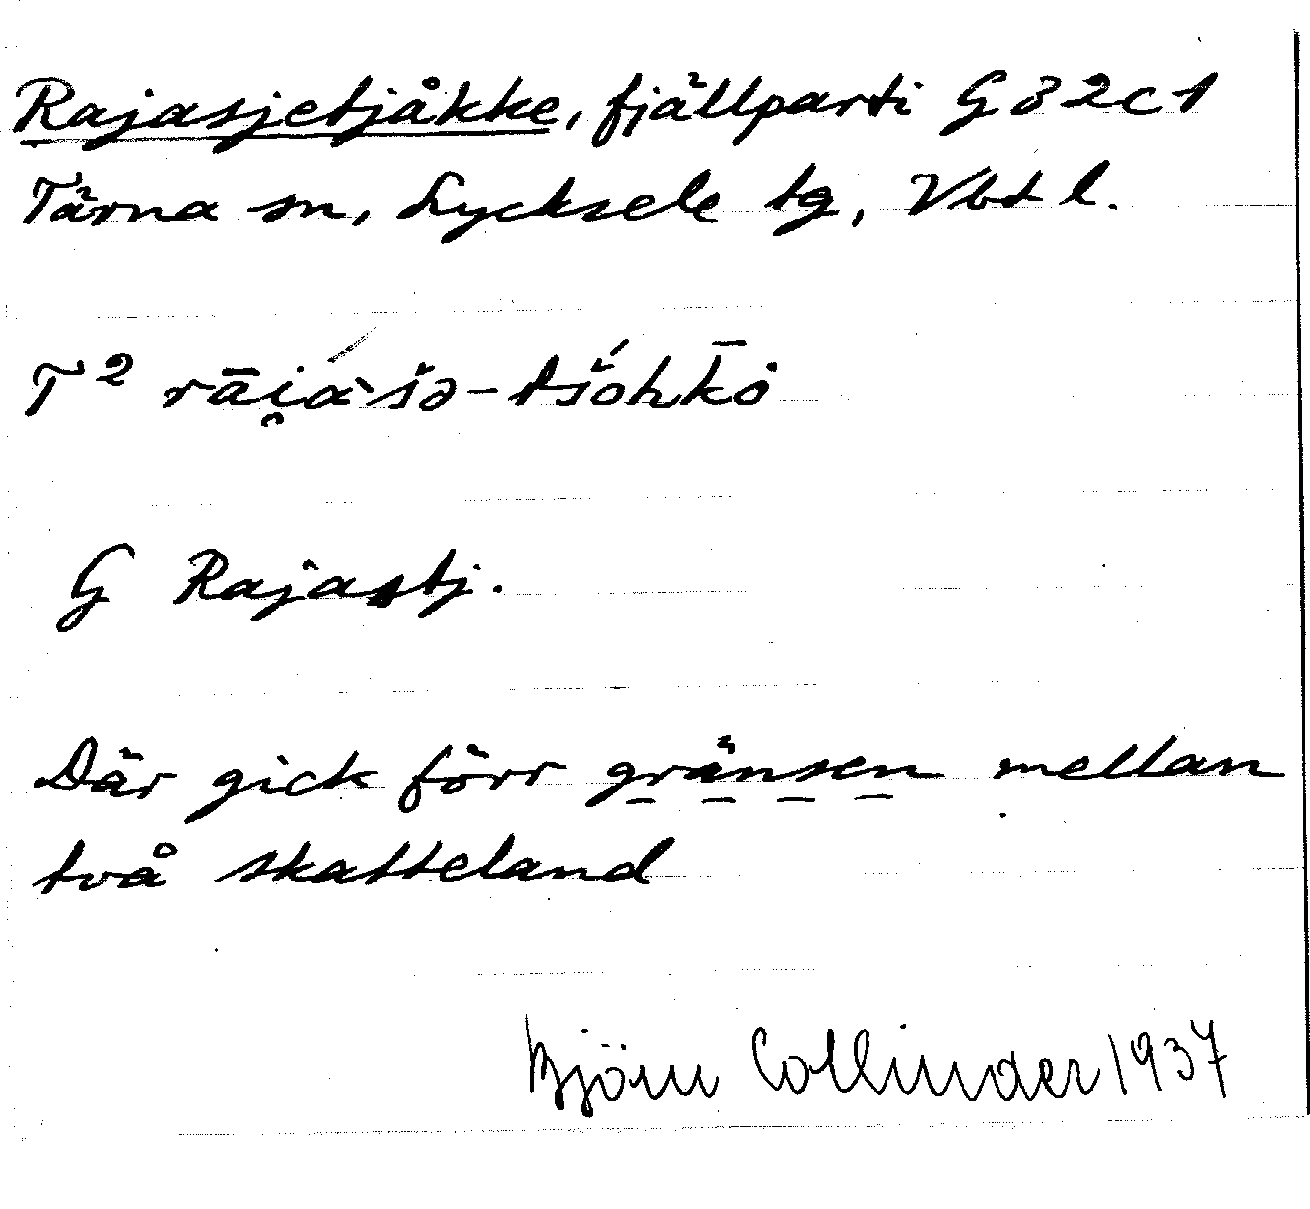 Rajasjetjåkke, fjällparti G 32 c 1
Tärna sn, Lycksele tg, Vbt l.
T² rāi̯ὰšə-tš́ȯhk̄ȯ
G Rajastj.
Där gick förr gränsen mellan
två skatteland
Björn Collinder 1937